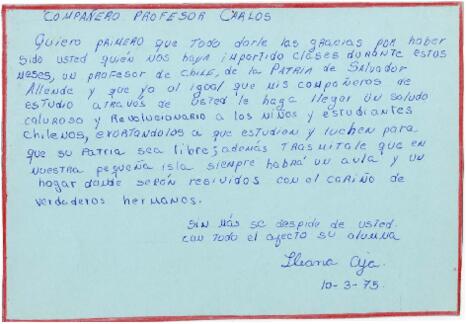 COMPAÑERO PROFESOR CARLOS
Quiero PRIMERO que Todo darle las gracias por haber
sido usted quién nos haya impartido clases durante estos
meses, un profesor de Chile, de la Patria de Salvador
Allende y que yo al igual que mis compañeros de
estudio através de usted le haga llegar un saludo
caluroso y Revolucionario a los niños y estudiantes
chilenos, exortandolos a que estudien y luchen para
que su Patria sea libre; además trasmitale que en
nuestra pequeña isla siempre habrá un aula y un
hogar donde serán resividos con el cariño de
verdaderos hermanos.
Sin más se despide de usted.
con todo el afecto su alumna
Ileana Aja.
10-3-75.